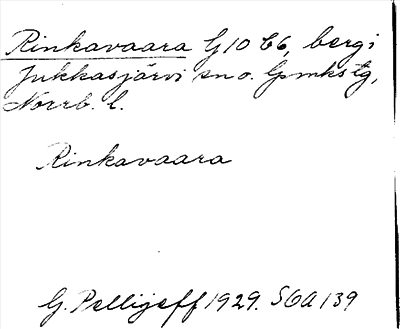 Rinkavaara G 10 C6, berg i
Jukkasjärvi sn o. lpmkstg,
Norrb. l.
Rinkavaara
G. Pellijeff 1929. SOA 139